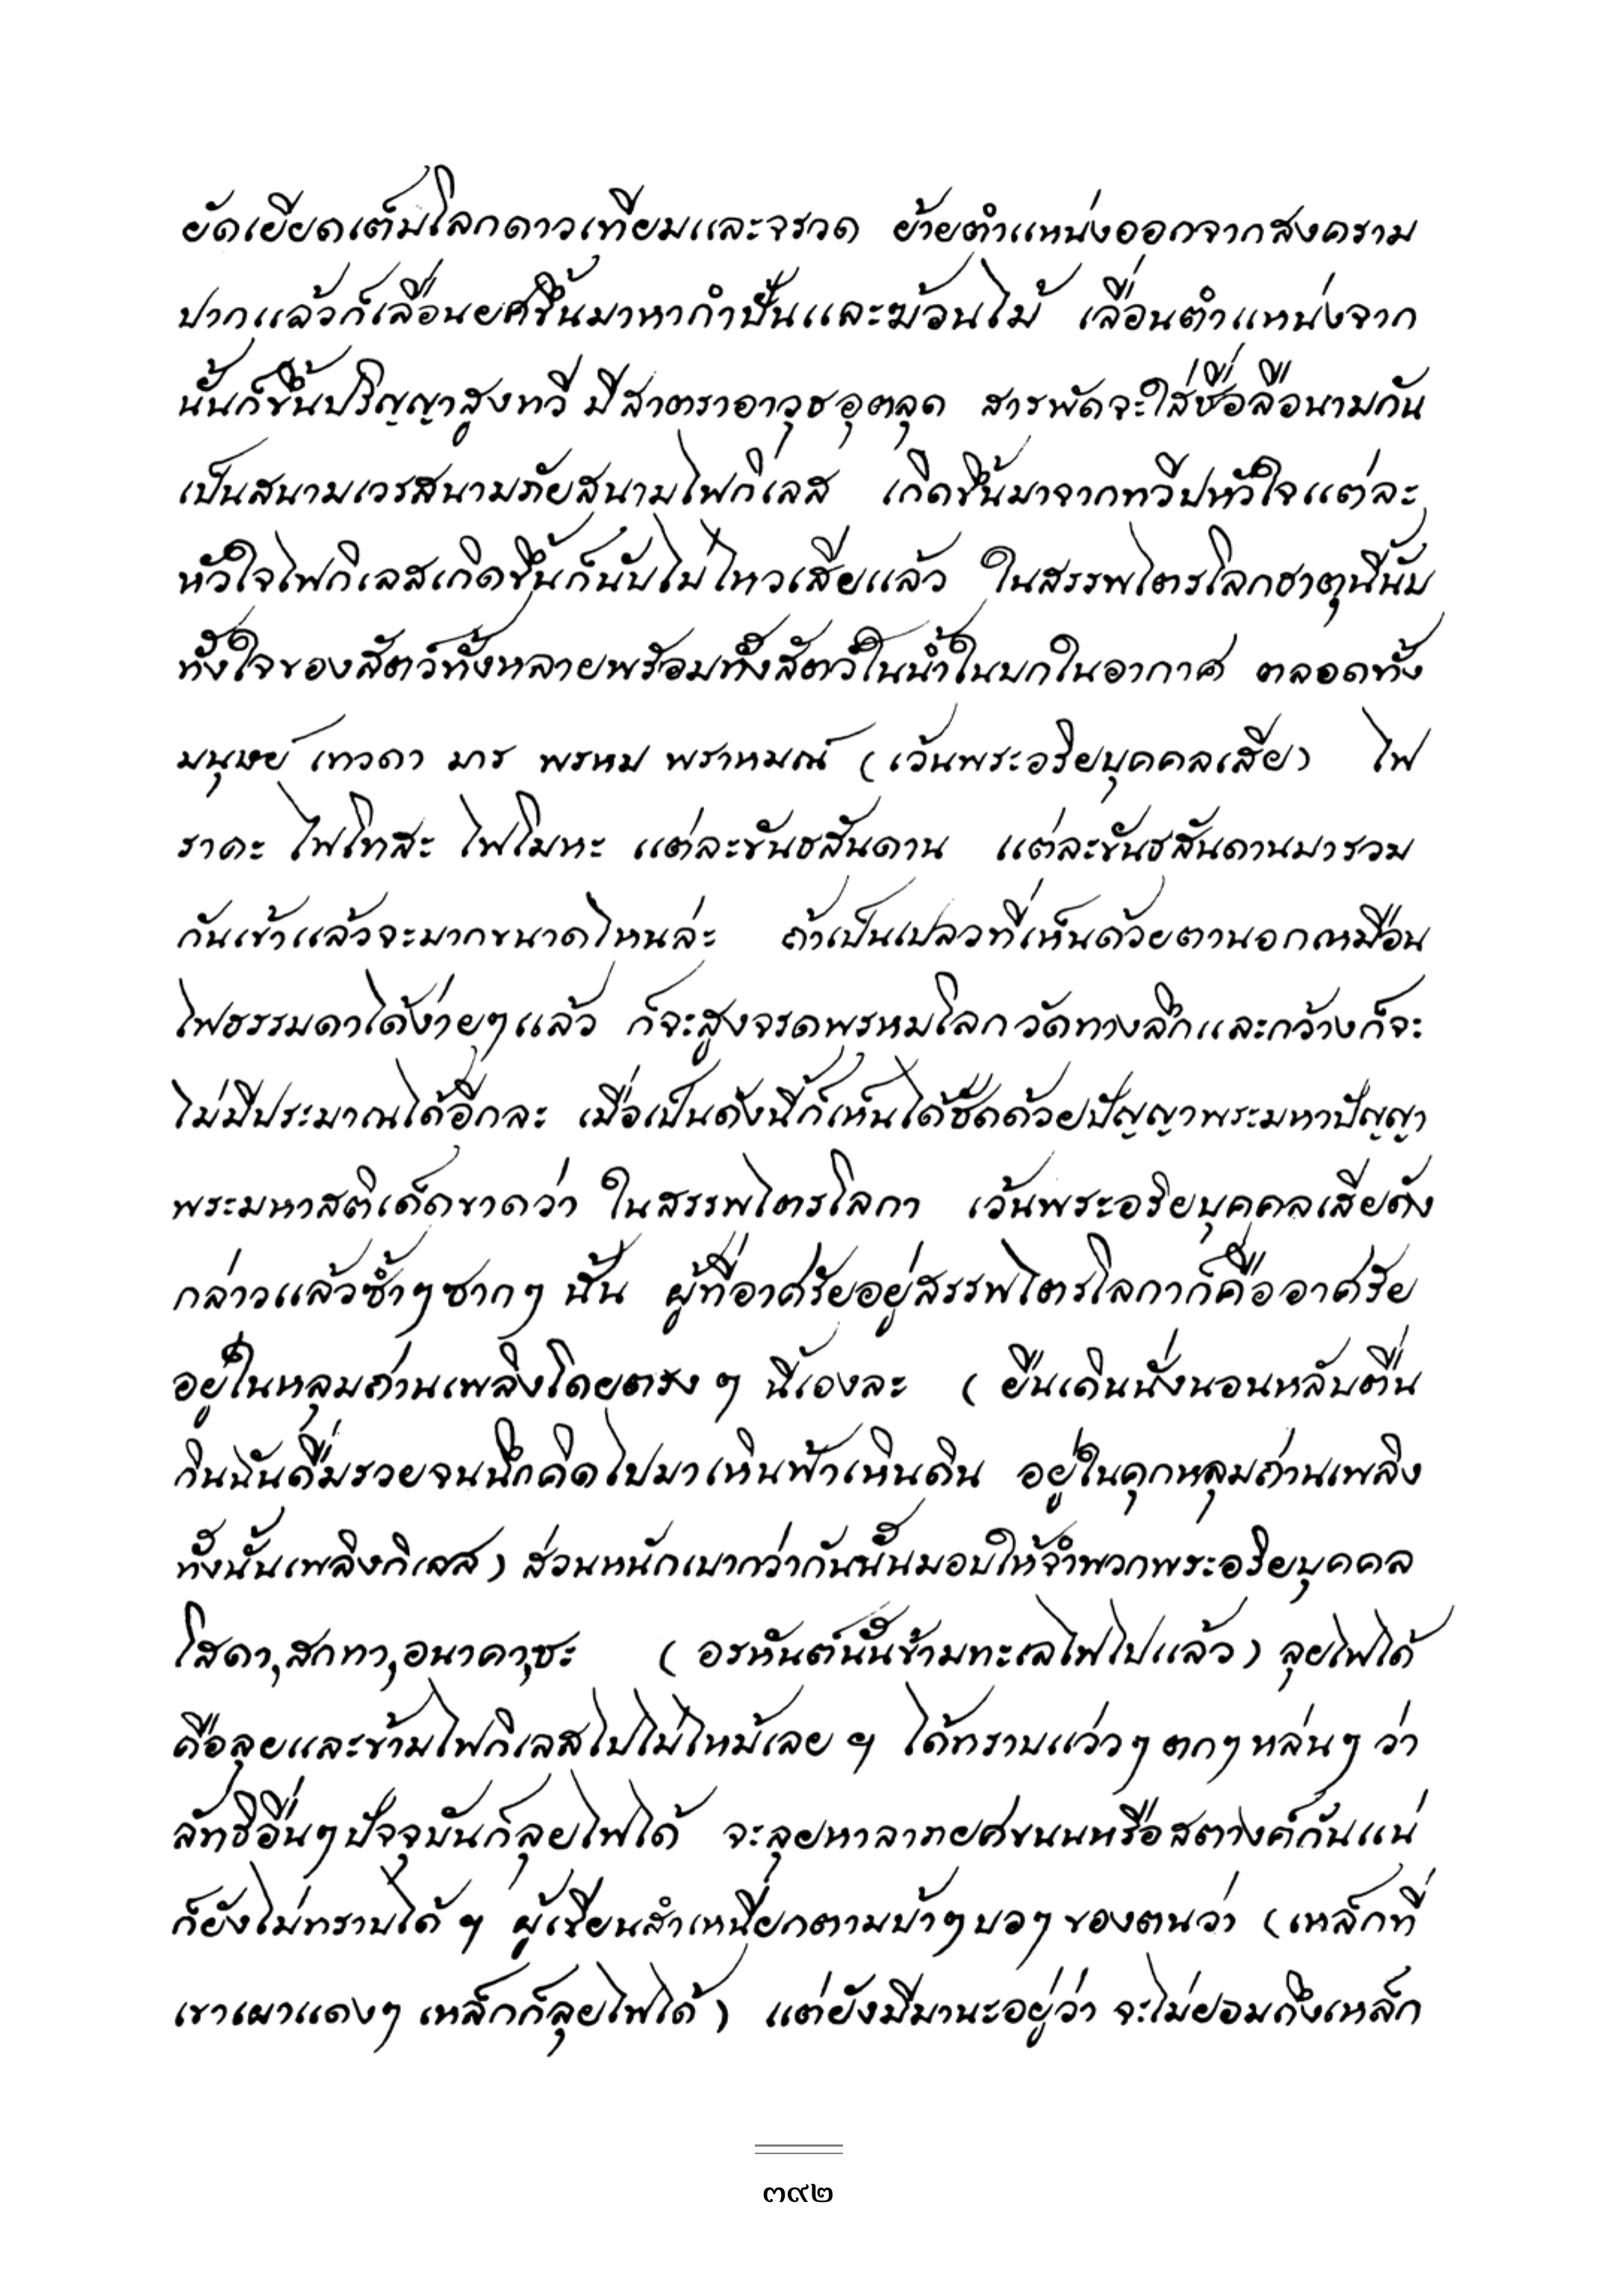 ยัดเยียดเต็มโลกดาวเทียมและจรวด ย้ายตำแหน่งออกจากสงคราม
ปากแล้วก็เลื่อนยศขึ้นมาหากำปั้นและฆ้อนไม้ เลื่อนตำแหน่งจาก
นั้นก็ขึ้นปริญญาสูงทวี มีสาตราอาวุธอุตลุด สารพัดจะใส่ชื่อลือนามกัน
เป็นสนามเวรสนามภัยสนามไฟกิเลส เกิดขึ้นมาจากทวีปหัวใจแต่ละ
หัวใจไฟกิเลสเกิดขึ้นก็นับไม่ไหวเสียแล้ว ในสรรพไตรโลกธาตุนี้นับ
ทั้งใจของสัตว์ทั้งหลายพร้อมทั้งสัตว์ในน้ำในบกในอากาศ ตลอดทั้ง
มนุษย์ เทวดา มาร พรหม พราหมณ์ (เว้นพระอริยบุคคลเสีย) ไฟ
ราคะ ไฟโทสะ ไฟโมหะ แต่ละขันธสันดาน แต่ละขันธสันดานมารวม
กันเข้าแล้วจะมากขนาดไหนล่ะ ถ้าเป็นเปลวที่เห็นด้วยตานอกเหมือน
ไฟธรรมดาได้ง่ายๆแล้ว ก็จะสูงจรดพรหมโลกวัดทางลึกและกว้างก็จะ
ไม่มีประมาณได้อีกละ เมื่อเป็นดังนี้ก็เห็นได้ชัดด้วยปัญญาพระมหาปัญญา
พระมหาสติเด็ดขาดว่า ในสรรพไตรโลกา เว้นพระอริยบุคคลเสียดัง
กล่าวแล้วซ้ำๆซากๆ นั้น ผู้ที่อาศรัยอยู่สรรพไตรโลกาก็คืออาศรัย
อยู่ในหลุมถ่านเพลิงโดยตรง ๆ นี้เองละ ( ยืนเดินนั่งนอนหลับตื่น
กินฉันดื่มรวยจนนึกคิดไปมาเหินฟ้าเหินดิน อยู่ในคุกหลุมถ่านเพลิง
ทั้งนั้นเพลิงกิเลส) ส่วนหนักเบากว่ากันนั้นมอบให้จำพวกพระอริยบุคคล
โสดา,สกทา,อนาคา,ซะ ( อรหันต์นั้นข้ามทะเลไฟไปแล้ว) ลุยไฟได้
คือลุยและข้ามไฟกิเลสไปไม่ไหม้เลย ฯ ได้ทราบแว่วๆ ตกๆ หล่นๆ ว่า
ลัทธิอื่นๆปัจจุบันก็ลุยไฟได้ จะลุยหาลาภยศขนนหรือสตางค์กันแน่
ก็ยังไม่ทราบได้ ฯ ผู้เขียนสำเหนียกตามบ้าๆ บอๆ ของตนว่า (เหล็กที่
เขาเผาแดงๆ เหล็กก็ลุยไฟได้ ) แต่ยังมีมานะอยู่ว่า จะไม่ยอมถึงเหล็ก
๓๙๒